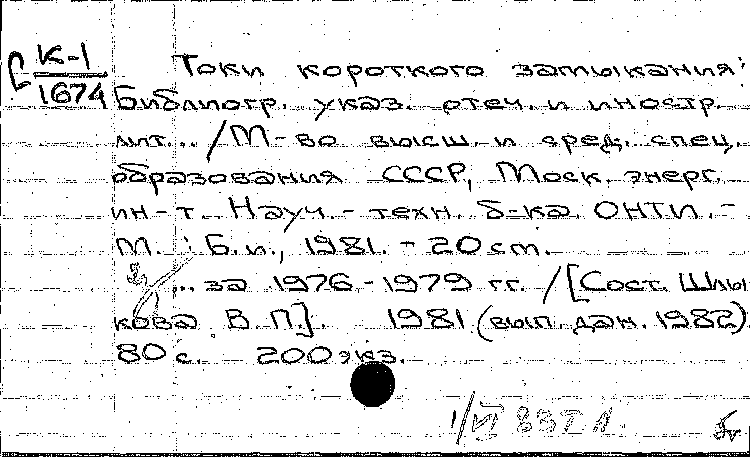 К-1
1674
Токи короткого замыкания:
Библиогр. указ. отеч. и иностр.
лит... /М-во высш. и сред. спец.
образования СССР, Моск. энерг.
ин-т. Науч.-техн. б-ка. ОНТИ.-
М. : Б. и., 1981. - 20 см.
... за 1976-1979 гг. /[Сост. Шлы
кова В. П.]. 1981 (вып. дан. 1982)
80 с. 200 экз.
1/VI 83 г.